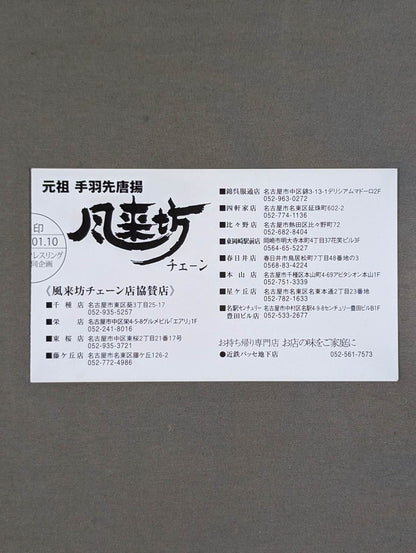 元祖 手羽先唐揚
風来坊
チェーン
印
01.10
レスリング
企画
《風来坊チェーン店協賛店》
■千種店 名古屋市東区葵3丁目25-17
052-935-5257
■栄店 名古屋市中区栄4-5-8グルメビル「エアリ」1F
052-241-8016
■東桜店 名古屋市中区東桜2丁目21番17号
052-935-3721
■藤ケ丘店 名古屋市名東区藤ケ丘126-2
052-772-4986
■錦呉服通店 名古屋市中区錦3-13-1デリシアムマドーロ2F
052-963-0272
■四軒家店 名古屋市名東区延珠町602-2
052-774-1136
■比々野店 名古屋市熱田区比々野町72
052-682-8404
■東岡崎駅前店 岡崎市明大寺本町4丁目37花茣ビル3F
0564-65-5227
■春日井店 春日井市鳥居松町7丁目48番地の3
0568-83-4223
■本山店 名古屋市千種区本山町4-69アビタシオン本山1F
052-751-3339
■星ケ丘店 名古屋市名東区名東本通2丁目23番地
052-782-1633
■名駅センチュリー豊田ビル店 名古屋市中村区名駅4-9-8センチュリー豊田ビルB1F
052-533-2677
お持ち帰り専門店 お店の味をご家庭に
●近鉄パッセ地下店 052-561-7573